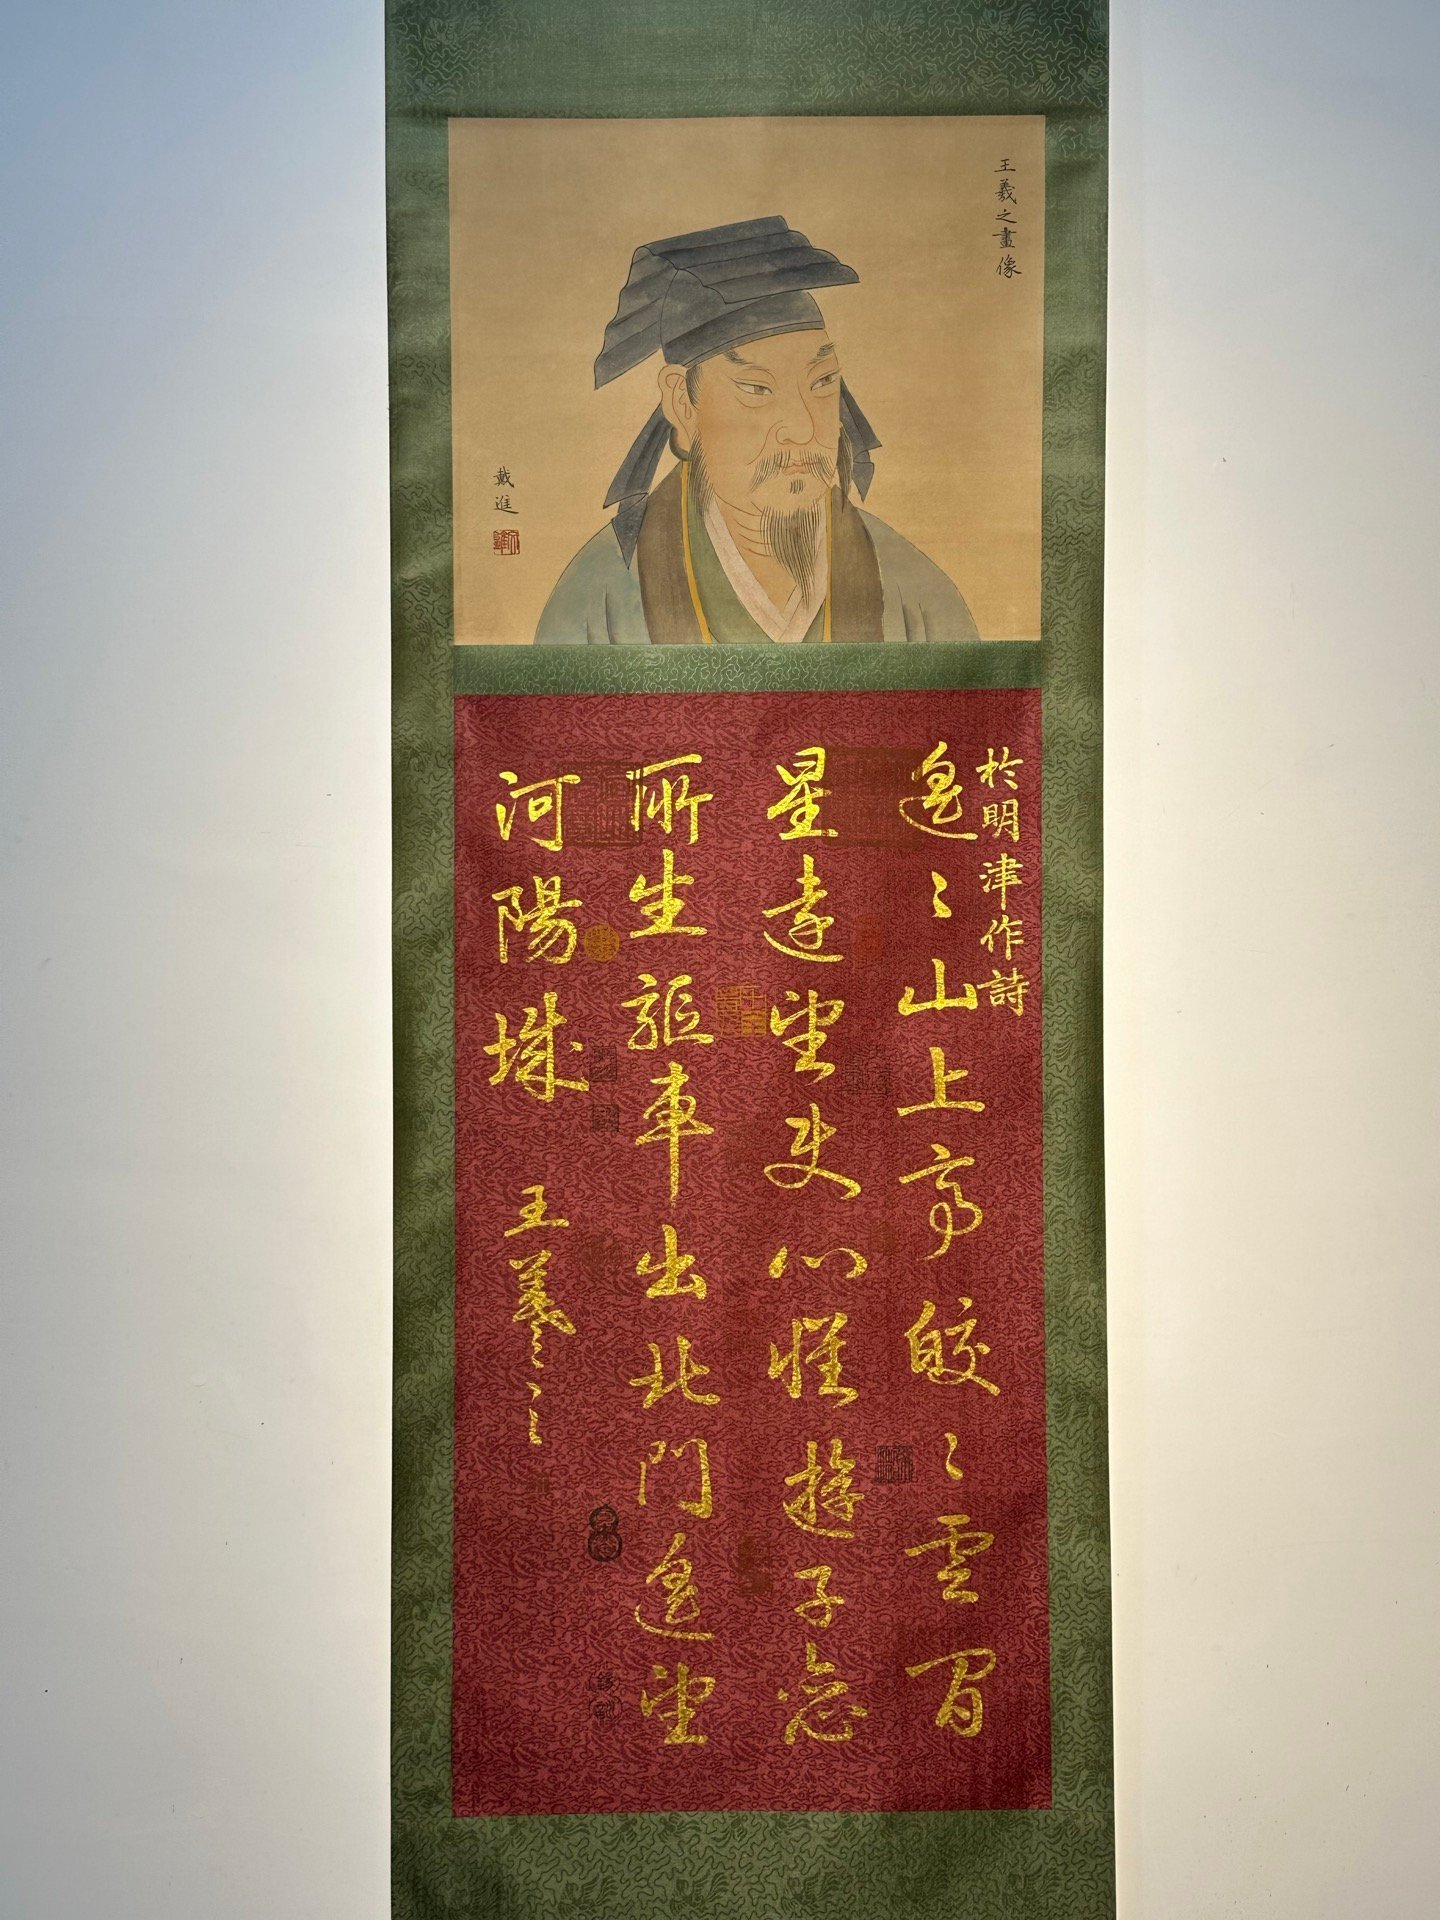 王羲之畫像
戴進
於明津作詩
遙〻山上亭皎〻雲間
星遠望使心懷遊子戀
所生驅車出北門遙望
河陽城
王羲之